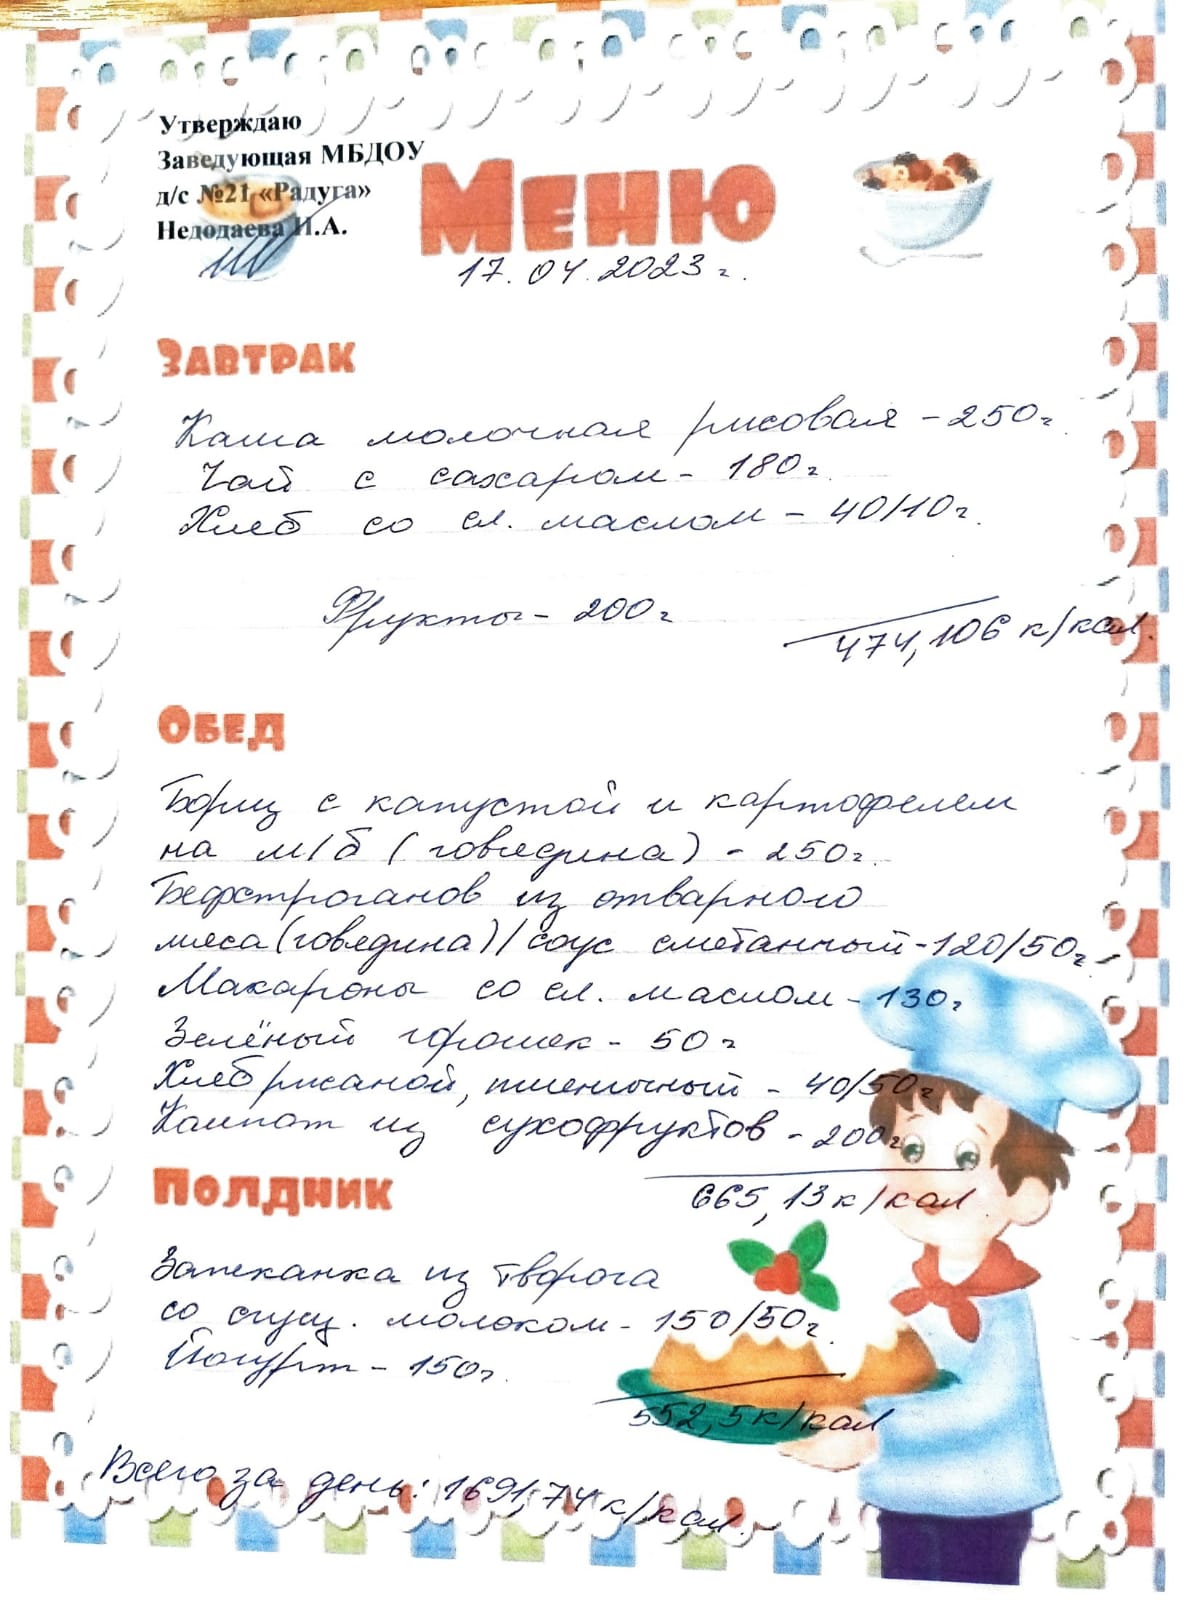 Утверждаю
Заведующая МБДОУ
д/с №21 «Радуга»
Недодаева И.А.
Меню
17.04.2023г.
Завтрак
Каша молочная рисовая - 250г.
Чай с сахаром - 180г.
Хлеб со сл. маслом - 40/10г.
Фрукты - 200г
474,106 к/кал.
Обед
Борщ с капустой и картофелем
на м/б (говядина) - 250г.
Бефстроганов из отварного
мяса (говядина)/соус сметанный - 120/50г.
Макароны со сл. маслом - 130г
Зелёный горошек - 50г
Хлеб ржаной, пшеничный - 40/50г
Компот из сухофруктов - 200г
665,13 к/кал
Полдник
Запеканка из творога
со сгущ. молоком - 150/50г.
Йогурт - 150г.
552,5 к/кал
Всего за день: 1691,74 к/кал.